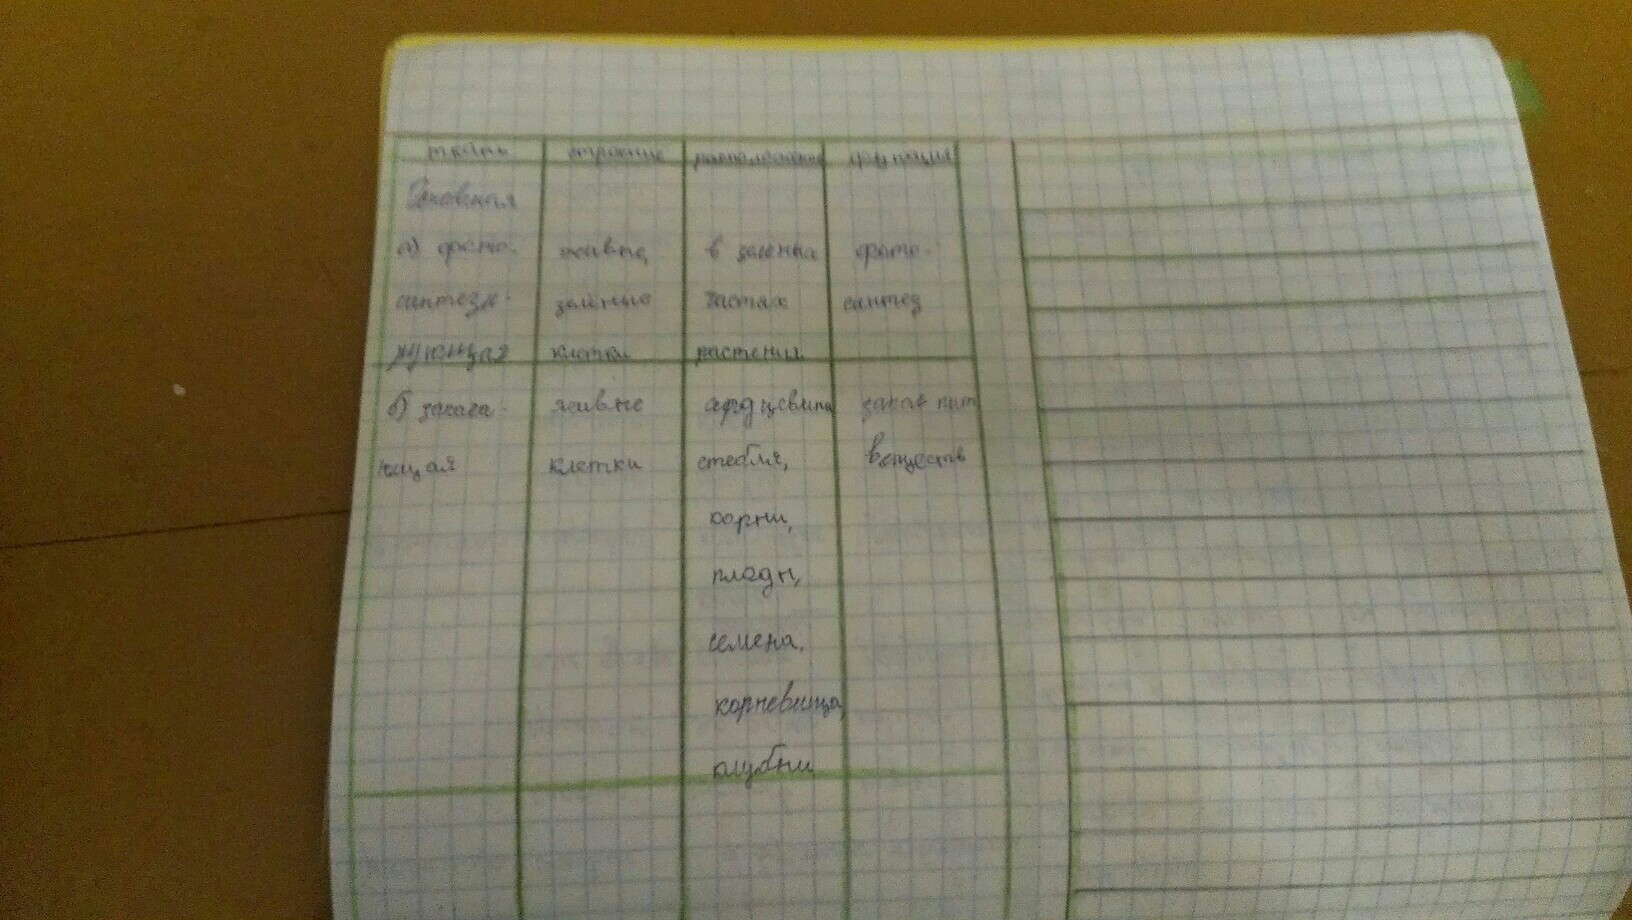 ткань строение расположение функция
Основная
а) фото- живые, в зеленых фото-
синтези- зелёные частях синтез
рующая клетки растения
б) запаса- живые сердцевина запас пит
ющая клетки стебля, веществ
корни,
плоды,
семена,
корневища,
клубни